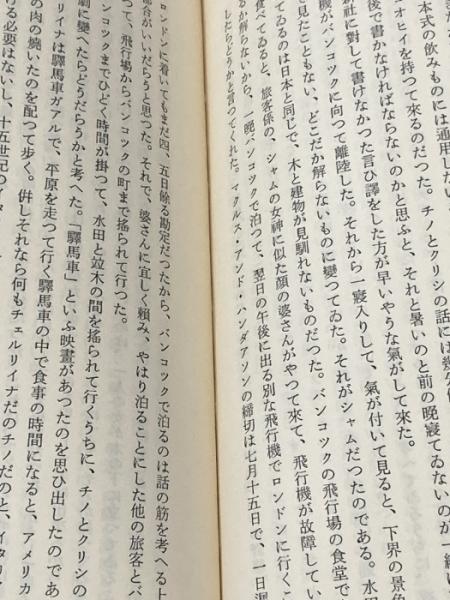 本式の飲みものには通用しない
オヒイを持つて來るのだつた。チノとクリシの話には幾分
後で書かなければならないのかと思ふと、それと暑いのと前の晩寢てゐないのが一
社に對して書けなかつた言ひ譯をした方が早いやうな氣がして來た。
機がバンコックに向つて離陸した。それから一寢入りして、氣が付いて見ると、下界の景色
で見たこともない、どこだか解らないものに變つてゐた。それがシャムだつたのである。水田
ゐるのは日本と同じで、木と建物が見馴れないものだつた。バンコックの飛行場の食堂で
食べてゐると、旅客係の、シャムの女神に似た顔の婆さんがやつて來て、飛行機が故障してい
るか解らないから、一晩バンコックで泊つて、翌日の午後に出る別な飛行機でロンドンに行くこ
したらどうかと言つてくれた。マクルス・アンド・ハンダアソンの締切は七月十五日で、一日
ロンドンに着いてもまだ四、五日餘る勘定だつたから、バンコックで泊るのは話の筋を考へる上
都合がいいだらうと思つた。それで、婆さんに宜しく頼み、やはり泊ることにした他の旅客とバ
つて、飛行場からバンコックの町まで搖られて行つた。
コックまでひどく時間が掛つて、水田と竝木の間を搖られて行くうちに、チノとクリシの
劇に變へたらどうだらうかと考へた。「驛馬車」といふ映畫があつたのを思ひ出したのであ
リイナは驛馬車ガアルで、平原を走つて行く驛馬車の中で食事の時間になると、アメリカ
の肉の燒いたのを配つて歩く。倂しそれなら何もチェルリイナだのチノだのと、イタリア
ける必要はないし、十五世紀の